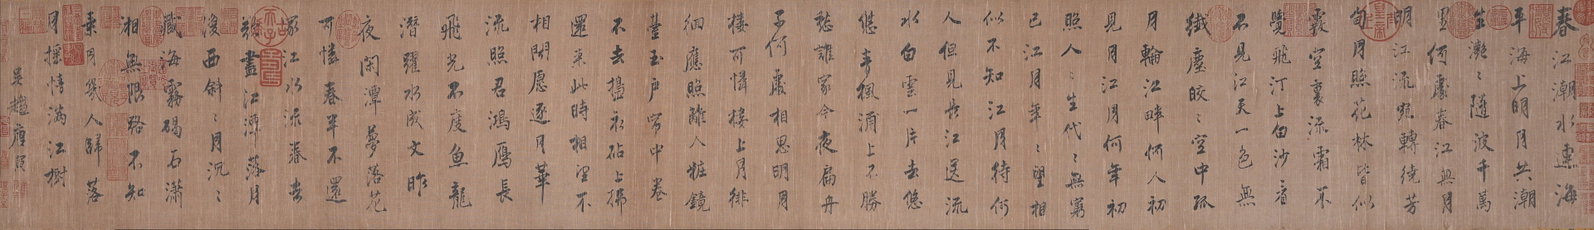 春江潮水連海
平海上明月共潮
生灩〻隨波千萬
里何處春江無月
明江流宛轉繞芳
甸月照花林皆似
霰空裏流霜不
覺飛汀上白沙看
不見江天一色無
纖塵皎〻空中孤
月輪江畔何人初
見月江月何年初
照人〻生代〻無窮
已江月年〻望相
似不知江月待何
人但見長江送流
水白雲一片去悠
悠青楓浦上不勝
愁誰家今夜扁舟
子何處相思明月
樓可憐樓上月徘
徊應照離人粧鏡
臺玉戶簾中卷
不去擣衣砧上拂
還來此時相望不
相聞願逐月華
流照君鴻雁長
飛光不度魚龍
潛躍水成文昨
夜閑潭夢落花
可憐春半不還
家江水流春去
欲盡江潭落月
復西斜〻月沉〻
藏海霧碣石瀟
湘無限路不知
乘月幾人歸落
月搖情滿江樹
吳趨唐寅